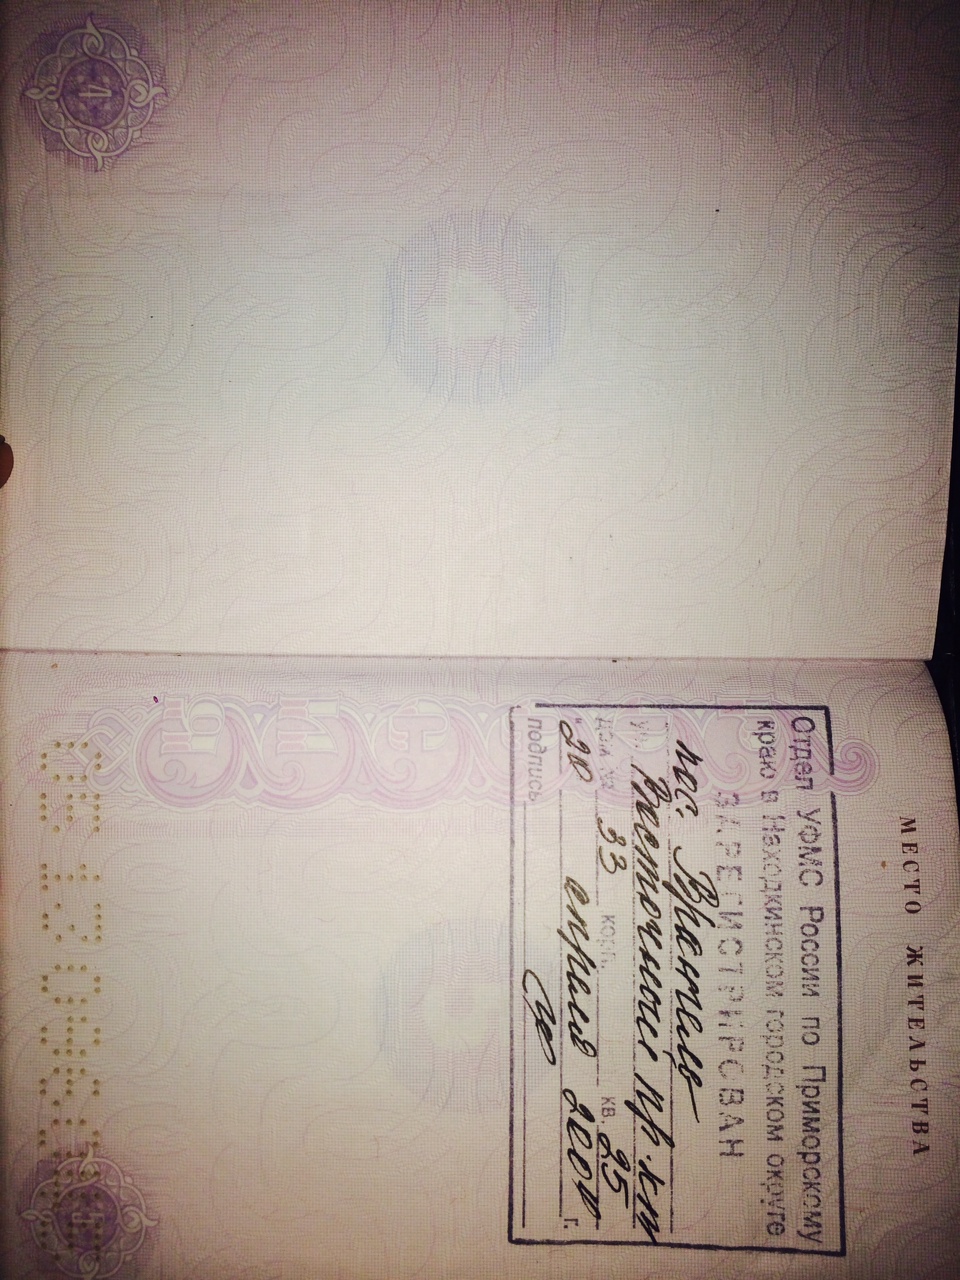 МЕСТО ЖИТЕЛЬСТВА
Отдел УФМС России по Приморскому
краю в Находкинском городском округе
ЗАРЕГИСТРИРОВАН
пос. Врангель
ул. Восточный пр-кт
дом № 33 корп. кв. 25
"20 апреля г.
подпись
4